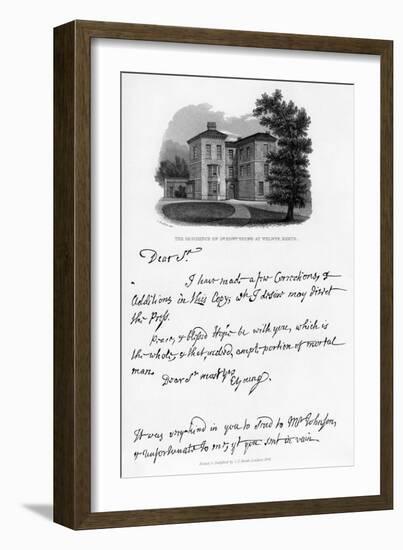 THE RESIDENCE OF DR EDWD YOUNG AT WELWYN, HERTS.
Dear Sr.
I have made a few Corrections, &
Additions in this Copy, wh I desire may direct
the Press.
Peace, & blessed Hope be with you, which is
the whole, & that indeed, ample portion of mortal
man.
Dear Sr most yrs
EYoung.
It was very kind in you to send to Mr Johnson,
& unfortunate to me, yt you sent in vain
Printed & Published by C. J. Smith, London